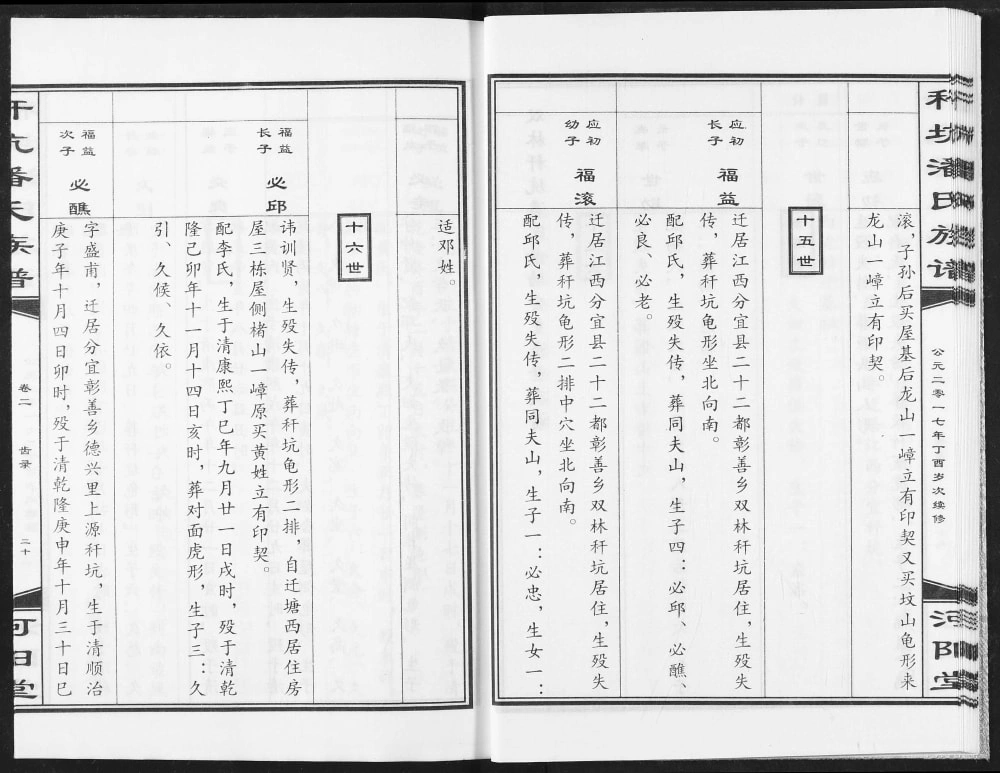 秆坑潘氏族谱
公元二零一七年丁酉岁次续修
河阳堂
滚，子孙后买屋基后龙山一嶂立有印契又买坟山龟形来
龙山一嶂立有印契。
十五世
应初
长子
福益
迁居江西分宜县二十二都彰善乡双林秆坑居住，生殁失
传，葬秆坑龟形坐北向南。
配邱氏，生殁失传，葬同夫山，生子四：必邱、必醮、
必良、必老。
应初
幼子
福滚
迁居江西分宜县二十二都彰善乡双林秆坑居住，生殁失
传，葬秆坑龟形二排中穴坐北向南。
配邱氏，生殁失传，葬同夫山，生子一：必忠，生女一：
适邓姓。
十六世
福益
长子
必邱
讳训贤，生殁失传，葬秆坑龟形二排，自迁塘西居住房
屋三栋屋侧楮山一嶂原买黄姓立有印契。
配李氏，生于清康熙丁巳年九月廿一日戌时，殁于清乾
隆己卯年十一月十四日亥时，葬对面虎形，生子三：久
引、久候、久依。
福益
次子
必醮
字盛甫，迁居分宜彰善乡德兴里上源秆坑，生于清顺治
庚子年十月四日卯时，殁于清乾隆庚申年十月三十日巳
秆坑潘氏族谱
卷二
齿录
二十
河阳堂